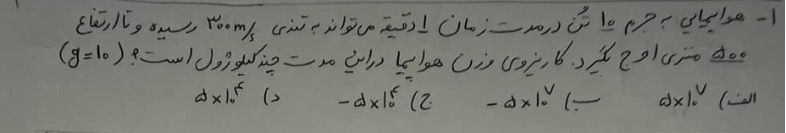 ۱- هواپیمایی به جرم ۱۵ تُن درمدت زمان ۱ دقیقه می‌تواند به تندی ۳۰۰m/s رسیده و تا ارتفاع
۵۰۰ متری اوج بگیرد. کار نیروی وزن هواپیما در این مدت چند کیلوژول است؟ (g=۱۰)
الف) ۵×۱۰^۷ ب) -۵×۱۰^۷ ج) -۵×۱۰^۴ د) ۵×۱۰^۴